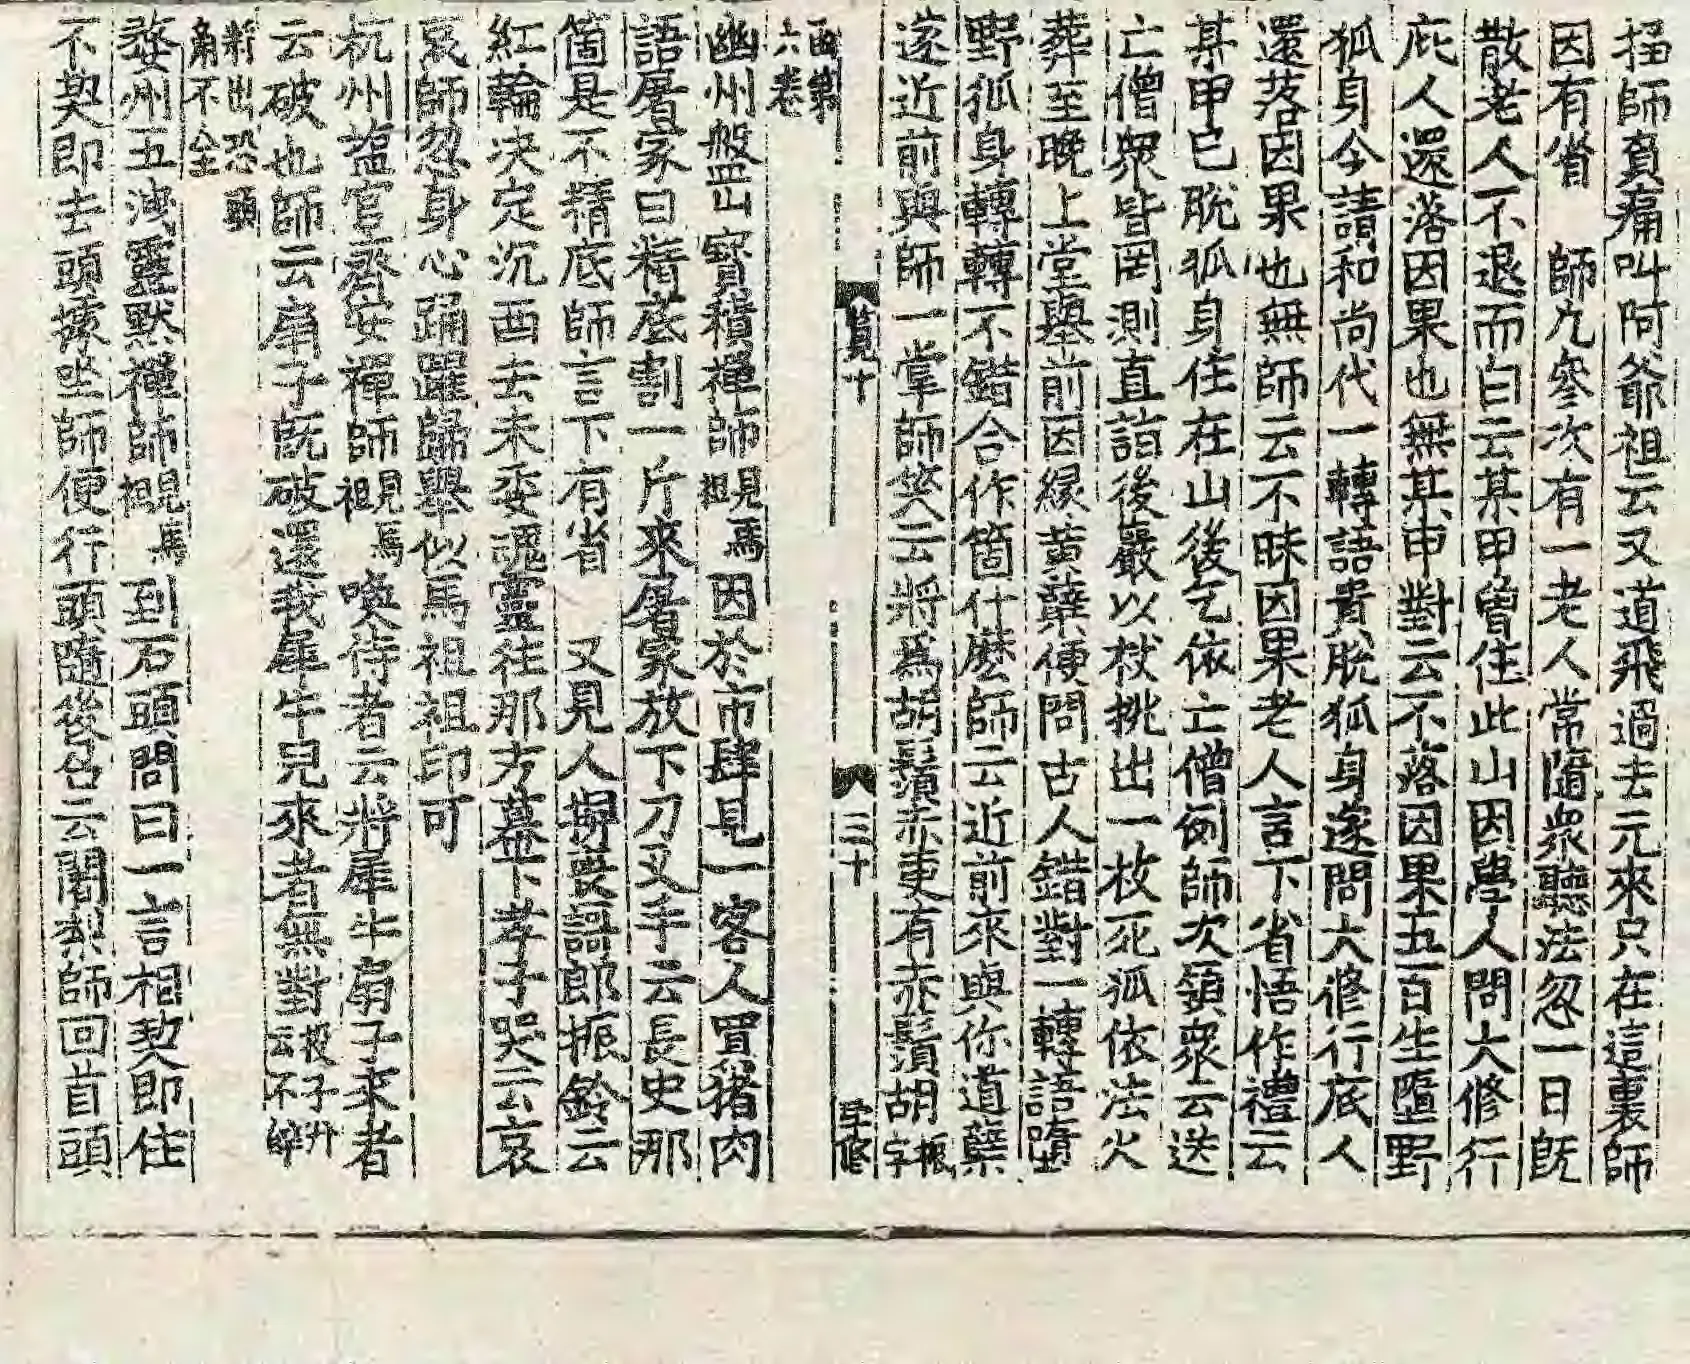 搊師負痛叫阿爺祖云又道飛過去元來只在這裏師
因有省　師凡參次有一老人常隨衆聽法忽一日旣
散老人不退而白云某甲曾住此山因學人問大修行
底人還落因果也無某甲對云不落因果五百生墮野
狐身今請和尚代一轉語貴脫狐身遂問大修行底人
還落因果也無師云不昧因果老人言下省悟作禮云
某甲已脫狐身住在山後乞依亡僧例師次領衆云送
亡僧衆皆罔測直詣後巖以杖挑出一枚死狐依法火
葬至晚上堂擧前因緣黃蘗便問古人錯對一轉語墮
野狐身轉轉不錯合作箇什麽師云近前來與你道蘗
遂近前與師一掌師笑云將爲胡鬚赤更有赤鬚胡
六卷
幽州盤山寶積禪師見馬祖因於市肆見一客人買猪肉
語屠家曰精底割一斤來屠家放下刀叉手云長史那
箇是不精底師言下有省　又見人舁喪謌郞振鈴云
紅輪決定沉西去未委魂靈往那方幕下孝子哭云哀
哀師忽身心踊躍歸擧似馬祖祖印可
杭州塩官齊安禪師見馬祖喚侍者云將犀牛扇子來者
云破也師云扇子旣破還我犀牛兒來者無對投子云不辝
將出恐頭角不全
婺州五洩靈默禪師見馬祖到石頭問曰一言相契卽住
不契卽去頭據坐師便行頭隨後召云闍梨師回首頭